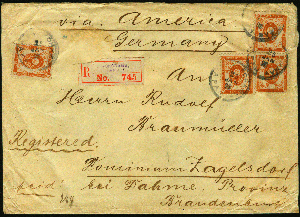 via. America
Germany
R
No. 745
An
Herrn Rudolf
Braumüller
Registered.
Dominium Zagelsdorf
bei Dahme. Provinz
Brandenburg